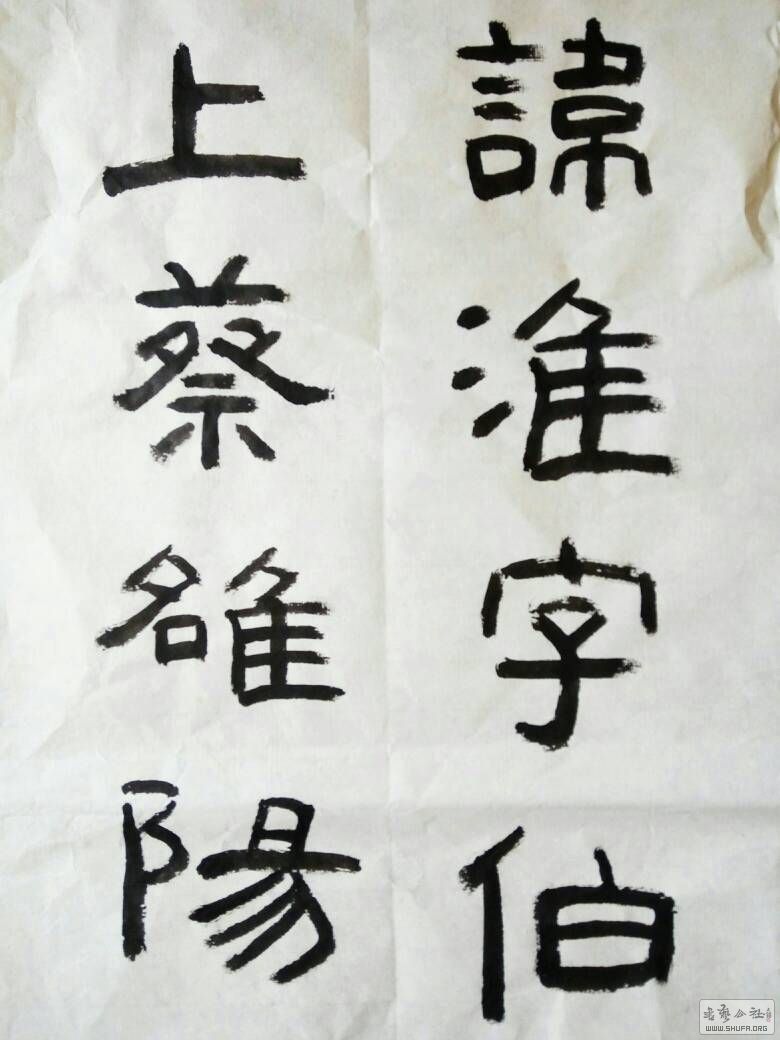 諱淮字伯
上蔡雒陽
WWW.SHUFA.ORG